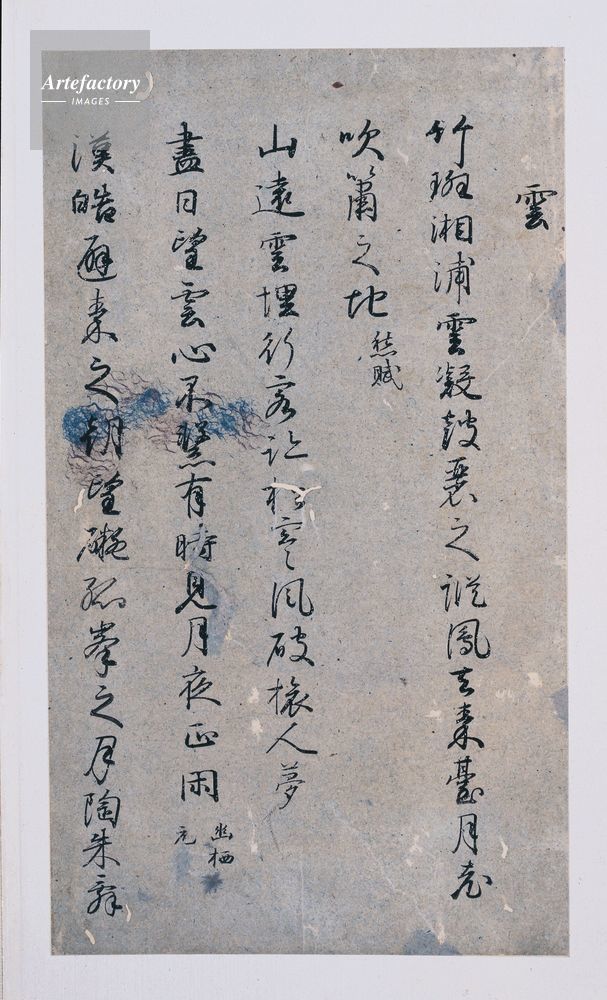 Artefactory
IMAGES
雲
竹斑湘浦雲凝鼓瑟之蹤鳳去秦臺月老
吹簫之地 愁賦
山遠雲埋行客跡松寒風破旅人夢
盡日望雲心不繫有時見月夜正閑 幽栖 元
漢皓避秦之朝望礙孤峯之月陶朱辭